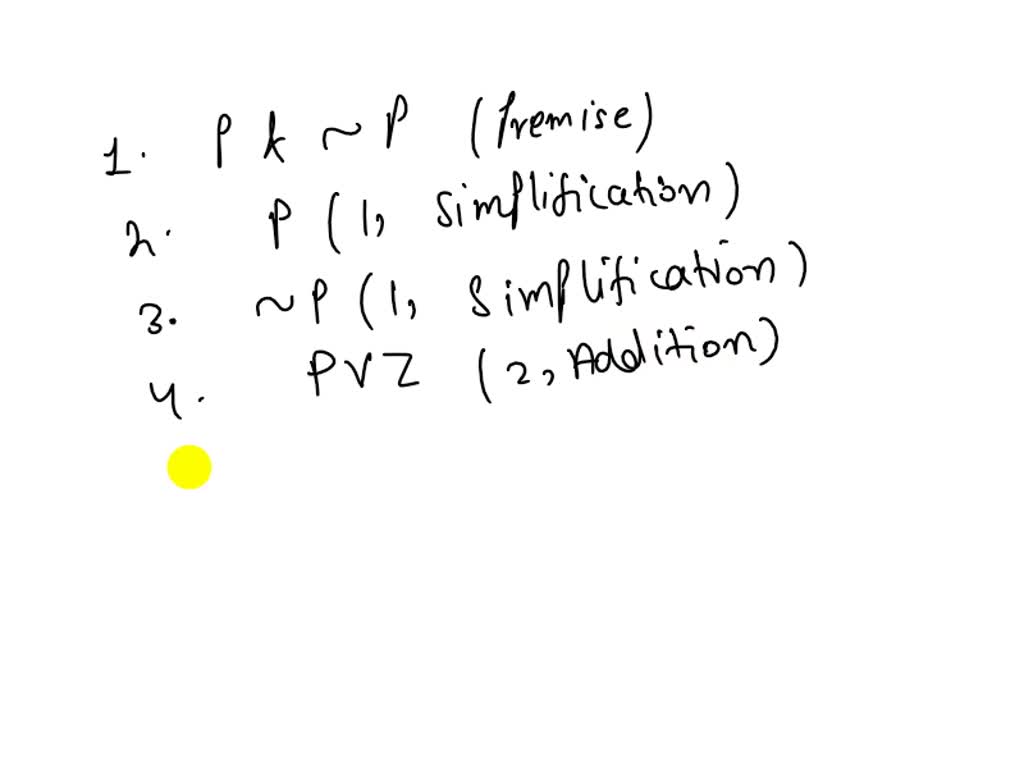 1. P & ~ P (Premise)
2. P (1, Simplification)
3. ~P (1, Simplification)
4. P V Z (2, Addition)